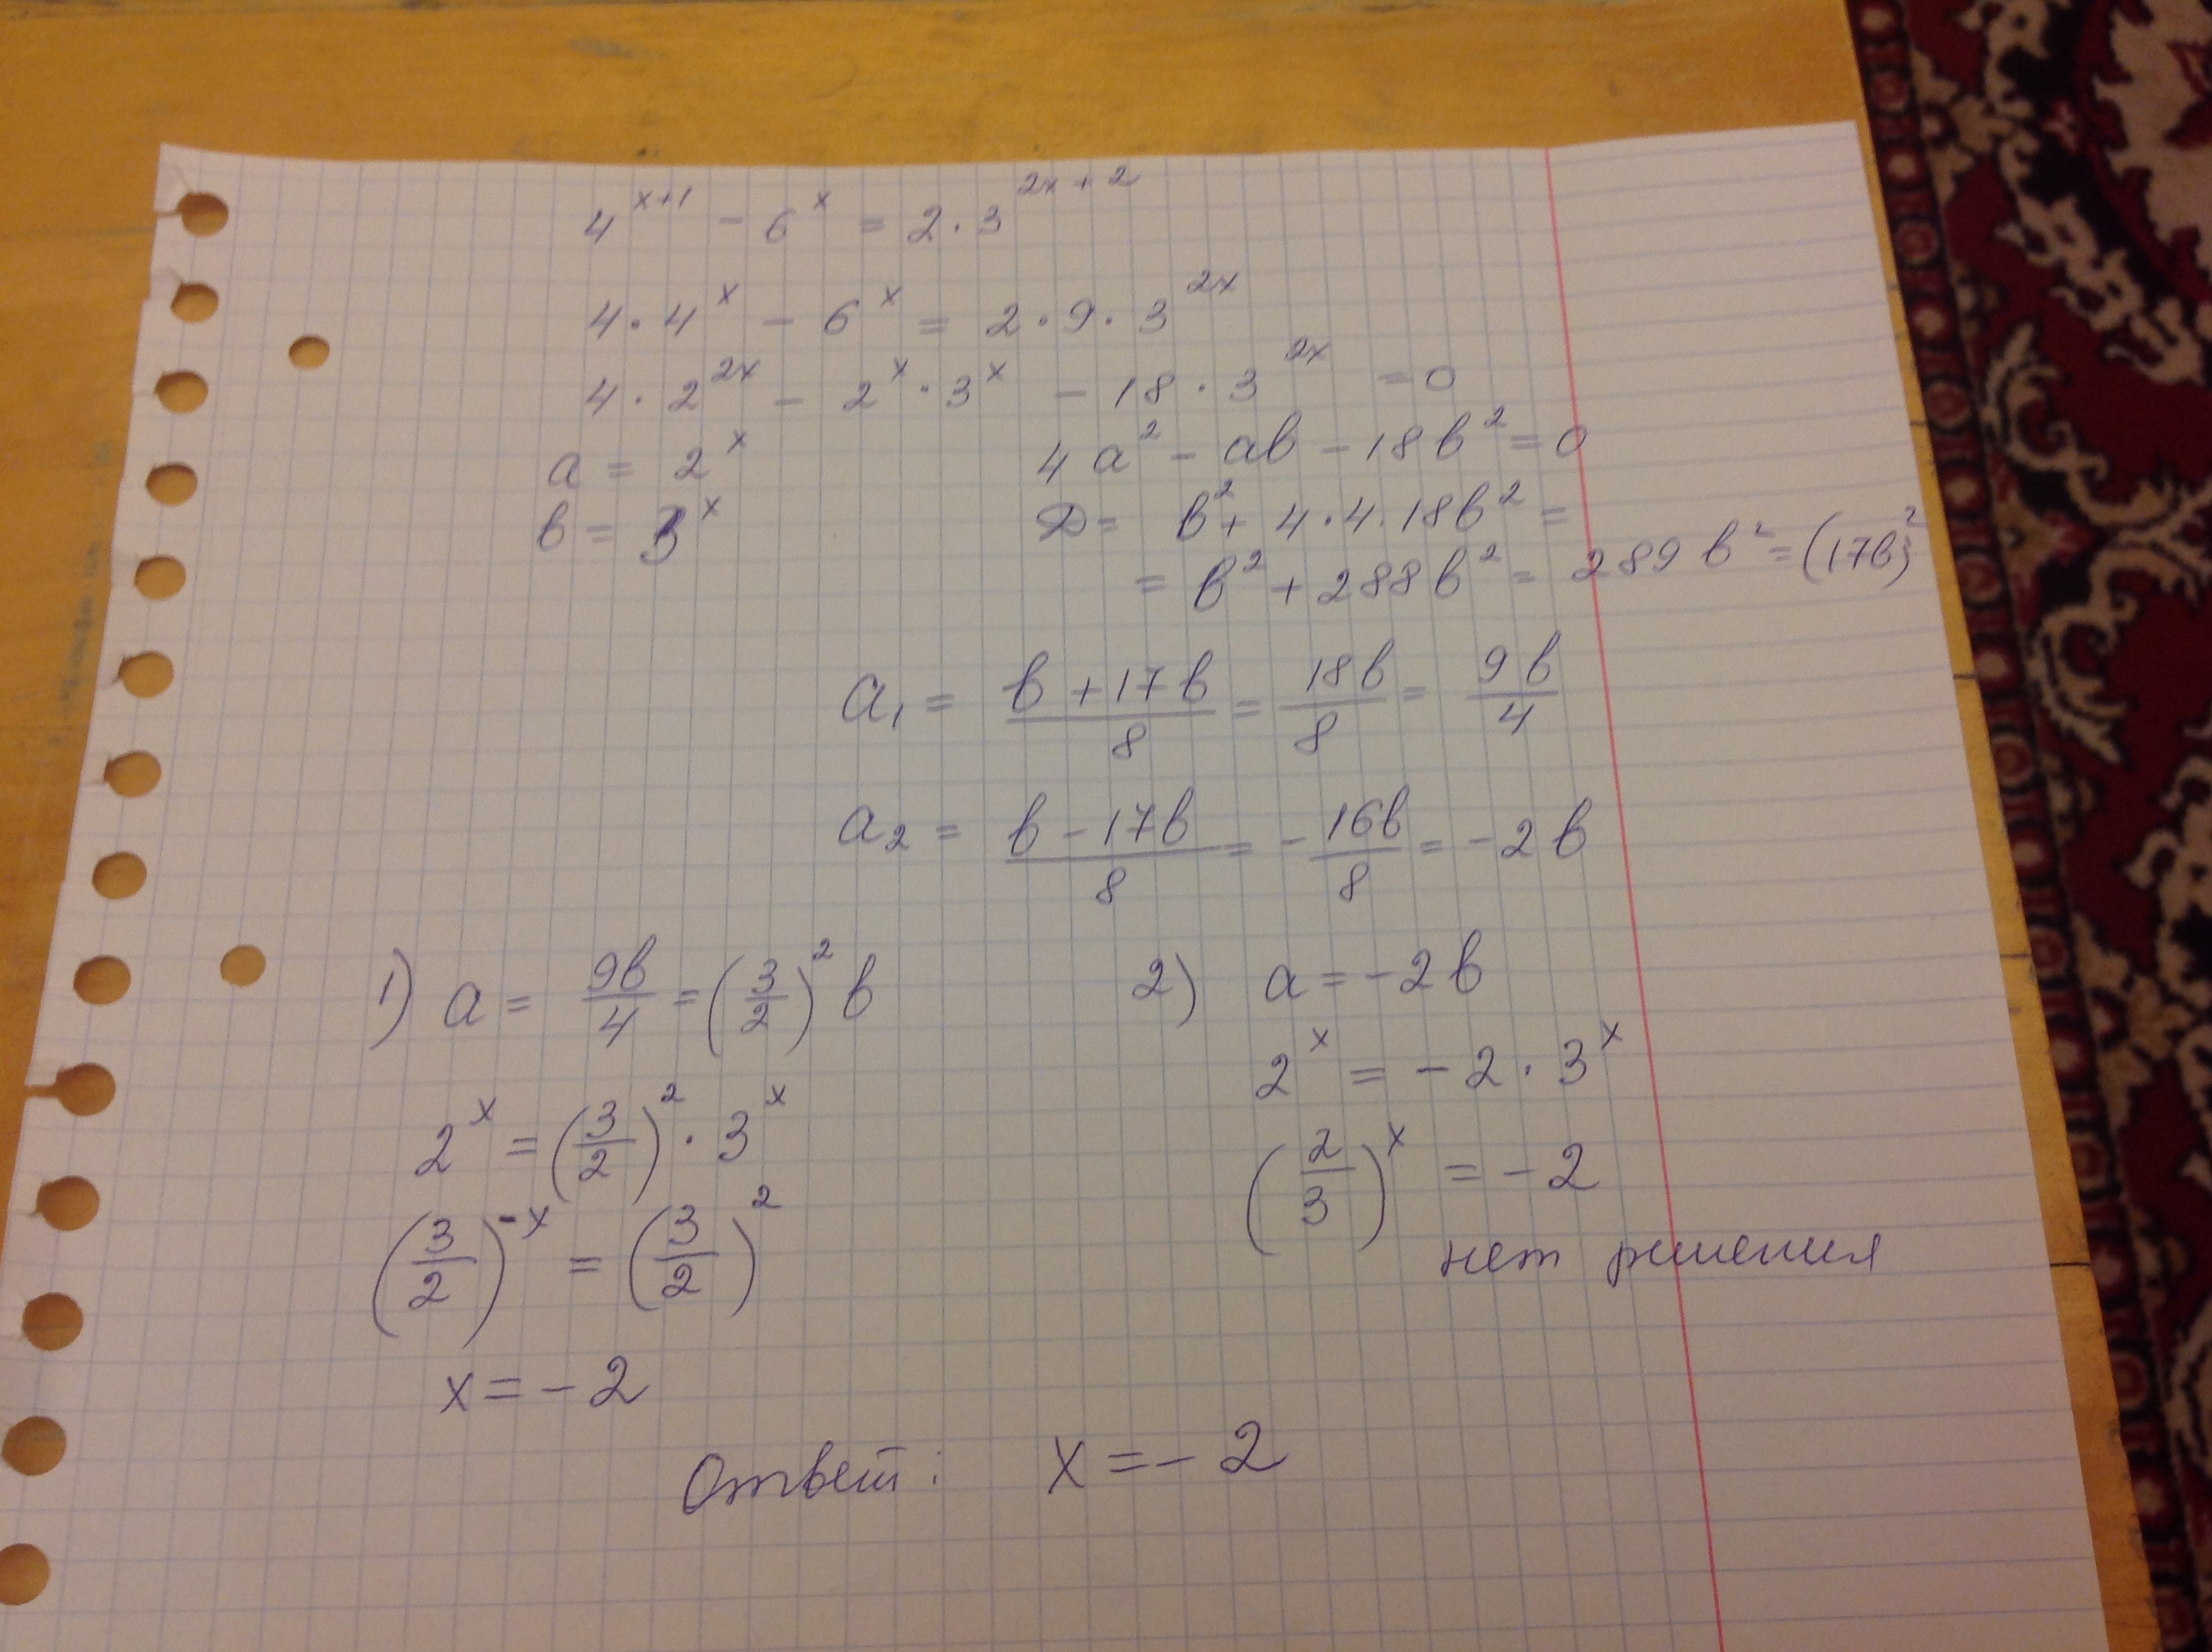 4^{x+1} - 6^x = 2 · 3^{2x+2}
4 · 4^x - 6^x = 2 · 9 · 3^{2x}
4 · 2^{2x} - 2^x · 3^x - 18 · 3^{2x} = 0
a = 2^x
b = 3^x
4a^2 - ab - 18b^2 = 0
D = b^2 + 4 · 4 · 18b^2 =
= b^2 + 288b^2 = 289b^2 = (17b)^2
a_1 = \frac{b + 17b}{8} = \frac{18b}{8} = \frac{9b}{4}
a_2 = \frac{b - 17b}{8} = -\frac{16b}{8} = -2b
1) a = \frac{9b}{4} = (\frac{3}{2})^2 b
2^x = (\frac{3}{2})^2 · 3^x
(\frac{3}{2})^{-x} = (\frac{3}{2})^2
x = -2
2) a = -2b
2^x = -2 · 3^x
(\frac{2}{3})^x = -2
нет решения
Ответ: x = -2